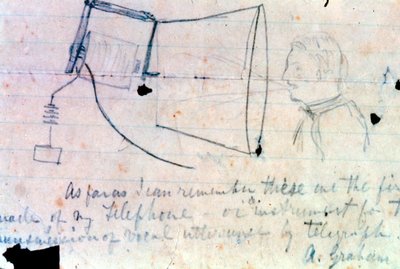 As far as I can remember these are the fir
made of my Telephone — or "instrument for t
ransmission of vocal utterances by telegraph
A. Graham